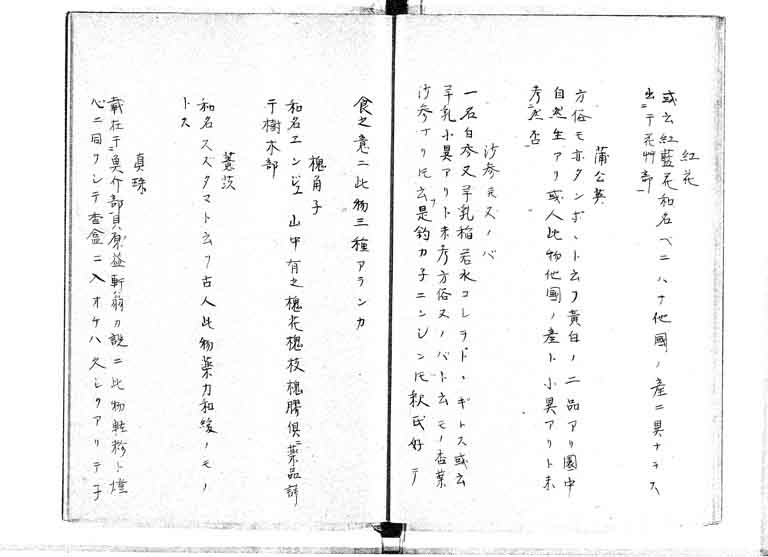 紅花
或云紅藍花和名ベニハナ他國ノ産ニ異ナラス
出ニ于花艸部
蒲公英
方俗モ亦タンポヽト云フ黄白ノ二品アリ園中
自然生アリ或人此物他國ノ産ト小異アリト未
考然否
沙参モスノバ
一名白参又羊乳稲若水コレヲドヽギトス或云
羊乳小異アリト未考方俗スノバト云モノ杏葉
沙参ナリ氏云フ是釣カ子ニンジン氏釈氏好テ
食之意ニ此物三種アランカ
槐角子
和名エンジュ山中有之槐花槐枝槐膠倶ニ薬品詳
于樹木部
薏苡
和名スズタマト云フ古人此物薬力和緩ノモノ
トス
真珠
載在于魚介部貝原益軒翁ノ説ニ此物軽粉ト煙
心ニ同クシテ香盒ニ入オケハ久シクアリテ子